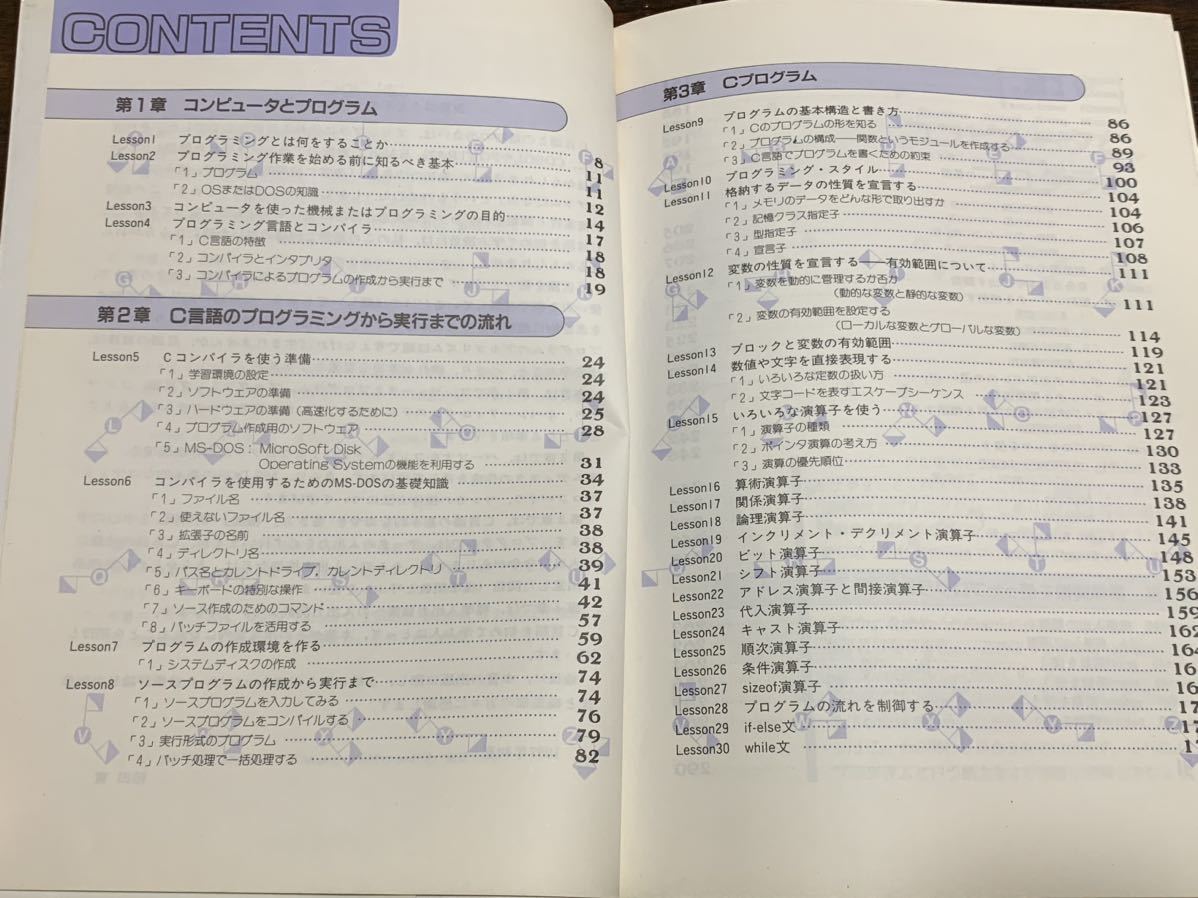 CONTENTS
第1章 コンピュータとプログラム
Lesson1 プログラミングとは何をすることか 8
Lesson2 プログラミング作業を始める前に知るべき基本 11
「1」プログラム 11
「2」OSまたはDOSの知識 12
Lesson3 コンピュータを使った機械またはプログラミングの目的 14
Lesson4 プログラミング言語とコンパイラ 17
「1」C言語の特徴 18
「2」コンパイラとインタプリタ 18
「3」コンパイラによるプログラムの作成から実行まで 19
第2章 C言語のプログラミングから実行までの流れ
Lesson5 Cコンパイラを使う準備 24
「1」学習環境の設定 24
「2」ソフトウェアの準備 24
「3」ハードウェアの準備(高速化するために) 25
「4」プログラム作成用のソフトウェア 28
「5」MS-DOS:MicroSoft Disk
Operating Systemの機能を利用する 31
Lesson6 コンパイラを使用するためのMS-DOSの基礎知識 34
「1」ファイル名 37
「2」使えないファイル名 37
「3」拡張子の名前 38
「4」ディレクトリ名 38
「5」パス名とカレントドライブ,カレントディレクトリ 39
「6」キーボードの特別な操作 41
「7」ソース作成のためのコマンド 42
「8」バッチファイルを活用する 57
Lesson7 プログラムの作成環境を作る 59
「1」システムディスクの作成 62
Lesson8 ソースプログラムの作成から実行まで 74
「1」ソースプログラムを入力してみる 74
「2」ソースプログラムをコンパイルする 76
「3」実行形式のプログラム 79
「4」バッチ処理で一括処理する 82
第3章 Cプログラム
Lesson9 プログラムの基本構造と書き方 86
「1」Cのプログラムの形を知る 86
「2」プログラムの構成——関数というモジュールを作成する 89
「3」C言語でプログラムを書くための約束 93
Lesson10 プログラミング・スタイル 100
Lesson11 格納するデータの性質を宣言する 104
「1」メモリのデータをどんな形で取り出すか 104
「2」記憶クラス指定子 106
「3」型指定子 107
「4」宣言子 108
Lesson12 変数の性質を宣言する——有効範囲について 111
「1」変数を動的に管理するか否か
(動的な変数と静的な変数) 111
「2」変数の有効範囲を設定する
(ローカルな変数とグローバルな変数) 114
Lesson13 ブロックと変数の有効範囲 119
Lesson14 数値や文字を直接表現する 121
「1」いろいろな定数の扱い方 121
「2」文字コードを表すエスケープシーケンス 123
Lesson15 いろいろな演算子を使う 127
「1」演算子の種類 127
「2」ポインタ演算の考え方 130
「3」演算の優先順位 133
Lesson16 算術演算子 135
Lesson17 関係演算子 138
Lesson18 論理演算子 141
Lesson19 インクリメント・デクリメント演算子 145
Lesson20 ビット演算子 148
Lesson21 シフト演算子 153
Lesson22 アドレス演算子と間接演算子 156
Lesson23 代入演算子 159
Lesson24 キャスト演算子 162
Lesson25 順次演算子 164
Lesson26 条件演算子 16
Lesson27 sizeof演算子 16
Lesson28 プログラムの流れを制御する 17
Lesson29 if-else文 17
Lesson30 while文 1